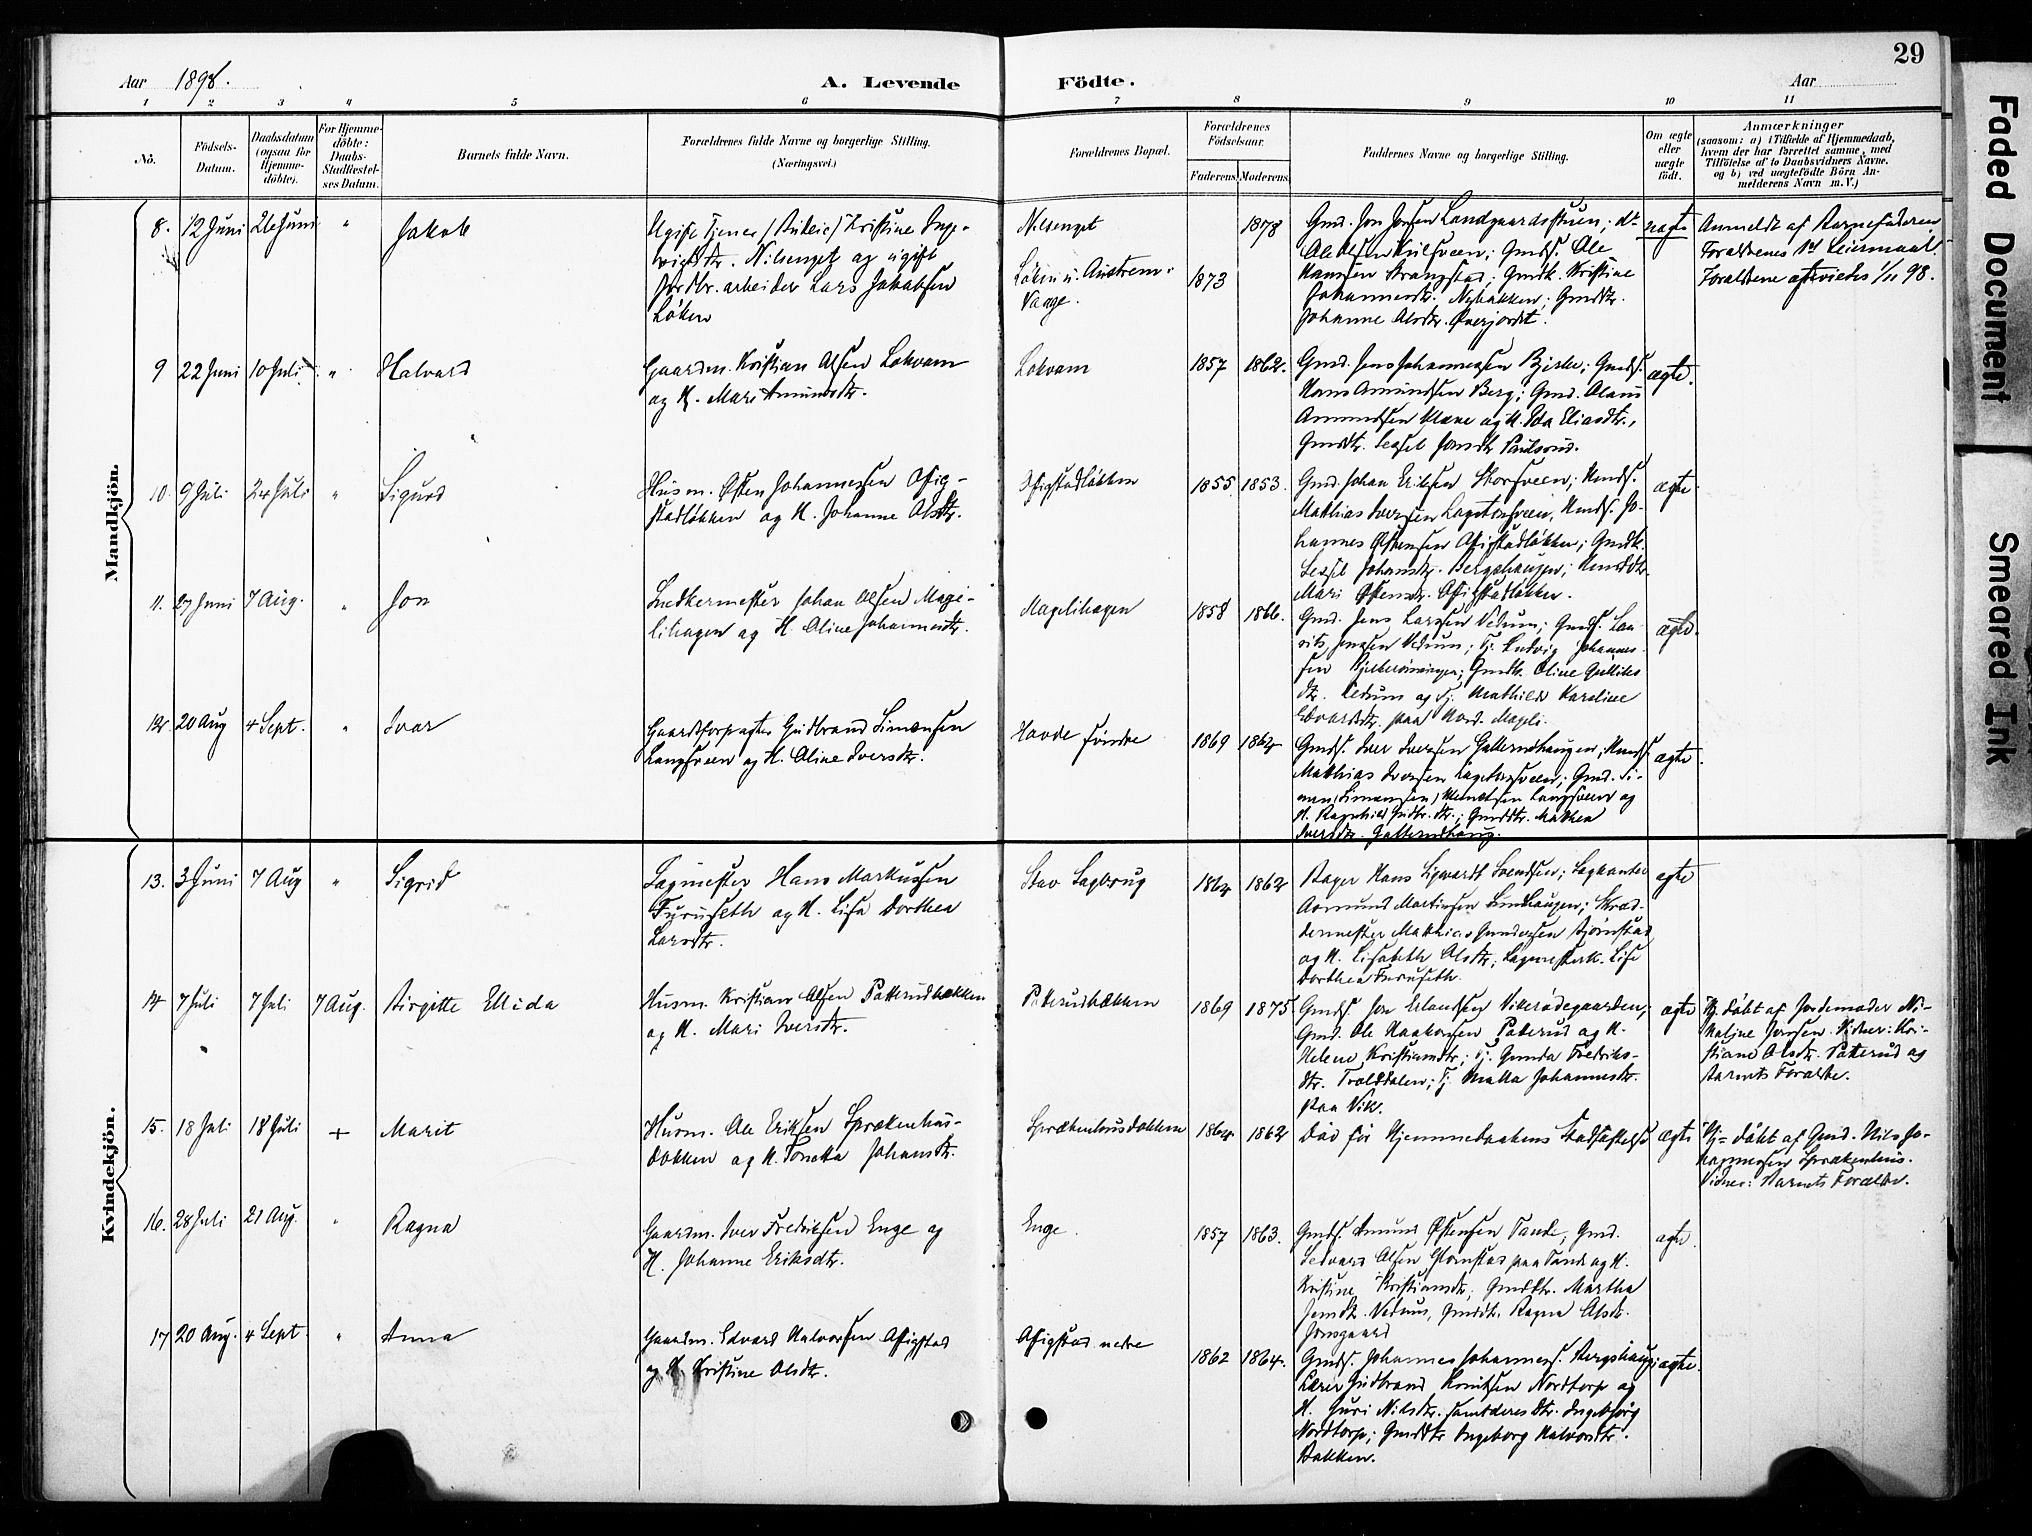 29
Aar 1898.
A. Levende Födte.
Aar
1 2 3 4 5 6 7 8 9 10 11
No.
Födsels-
Datum.
Daabsdatum
(ogsaa for
Hjemme-
döbte).
For Hjemme-
döbte:
Daabs-
Stadfæstel-
ses Datum.
Barnets fulde Navn.
Forældrenes fulde Navne og borgerlige Stilling.
(Næringsvei.)
Forældrenes Bopæl.
Forældrenes
Födselsaar.
Faderens. Moderens.
Faddernes Navne og borgerlige Stilling.
Om ægte
eller
uægte
födt.
Anmærkninger
(saasom: a) i Tilfælde af Hjemmedaab,
hvem der har forrettet samme, med
Tilföielse af to Daabsvidners Navne,
og b) ved uægtefödte Börn An-
melderens Navn m. V.)
Mandkjön.
8. 12 Juni 26 Juni " Jakob
Ugift Tjener (Budeie) Kristine Inge-
brigtsdtr. Nilsenget og ugift
Jordbr. arbeider Lars Jakobsen
Løken
Nilsenget
Løken u. Austrem i
Vaage.
1873 1878
Gmd. Jon Jonsen Landgaardsstuen; dt.
Ole Olsen Kulsveen; Gmds. Ole
Hansen Strangstad; Gmdk. Kristine
Johannesdtr. Nybakken; Gmdtr.
Johanne Olsdtr. Øverjordet.
uægte
Anmeldt af Barnefaderen.
Forældrenes 1st Leiermaal.
Forældrene ægteviedes 1/11 98.
9 22 Juni 10 Juli " Halvard
Gaardm. Kristian Olsen Lokvam
og H. Mari Amundsdtr.
Lokvam
1857 1862.
Gmd. Jens Johannessen Bjerke; Gmds.
Hans Amundsen Berg; Gmd. Olaus
Amundsen og H. Eliasdtr.,
Gmdtr. Sessel Jonsdtr. Paulsrud.
ægte.
10. 9 Juli 24 Juli " Sigurd
Husm. Østen Johannessen Ofig-
stadløkken og H. Johanne Olsdtr.
Ofigstadløkken
1855 1853.
Gmd. Johan Eriksen Storsveen; Hmds.
Mathias Iversen Lagetonsveen, Hmds. Jo-
hannes Østensen Ofigstadløkken; Gmdk.
Sessel Johansdtr. Bergshaugen; Hmdtr.
Mari Østensdtr. Ofigstadløkken.
ægte
11. 27 Juni 7 Aug. " Jon
Snedkermester Johan Olsen Mage-
lihagen og H. Oline Johannesdtr.
Magelihagen
1858 1866.
Gmd. Jens Larssen Vedum; Gmds. Lau-
rits Jenssen Vedum; Tj. Ludvig Johannes-
sen; Gmdk. Oline Gulliks-
dtr. Vedum og Tj. Mathilde Karoline
Edvardsdtr. paa Nord. Mageli.
ægte.
12. 20 Aug 4 Sept. " Ivar
Gaardforpagter Gudbrand Simensen
Langsveen og H. Oline Iversdtr.
Hovde søndre
1869 1864
Gmds. Iver Iversen Galterudhaugen; Hmds.
Mathias Iversen Lagetonsveen; Gmd. Si-
men (Simensen) Langsveen og
H. Ragnhild Gudbr. dtr.; Gmdtr. Mathea
Iversdtr. Galterudhaug.
ægte.
Kvindekjön.
13. 3 Juni 7 Aug " Sigrid
Sagmester Hans Markussen
Furuseth og H. Lise Dorthea
Larsdtr.
Stav Sagbrug
1864 1862
Bager Hans Sigvardt Svendsen; Sagkanter
Aamund Martinsen; Skræd-
dermester Mathias Gundersen Bjørnstad
og H. Lisabeth Olsdtr.; Sagmesterk. Lise
Dorthea Furuseth.
ægte
14 7 Juli 7 Juli 7 Aug. Birgitte Elida
Husm. Kristian Olsen Patterudbakken
og H. Mari Iversdtr.
Patterudbakken
1869 1875.
Gmds. Jon Erlandsen Vikerødegaarden;
Gmd. Ole Haakonsen Patterud og H.
Helene Kristiansdtr.; Tj. Gunda Fredriks-
dtr. Trolddalen; Tj. Mathea Johannesdtr.
paa Vik.
ægte
Hj. døbt af Jordemoder Ni-
koline Jonsen. Vidner: Kri-
stiane Olsdtr. Patterud og
Barnets Forældre.
15. 18 Juli 18 Juli + Marit
Husm. Ole Eriksen Sprækenhus-
bakken og H. Tonetta Johansdtr.
Sprækenhusbakken
1864 1862
Død før Hjemmedaabens Stadfæstelse
ægte
Hj= døbt af Gmd. Nils Jo-
hannessen Sprækenhus.
Vidner: Barnets Forældre.
16. 28 Juli 21 Aug. " Ragna
Gaardm. Iver Fredriksen Enge og
H. Johanne Eriksdtr.
Enge.
1857 1863.
Gmds. Amund Østensen Tande, Gmd.
Sedvard Olsen Glomstad paa Tande og H.
Kristine Kristiansdtr.; Gmdtr. Martha
Jensdtr. Vedum, Gmdtr. Ragna Olsdtr.
Jonsgaard
ægte.
17 20 Aug. 4 Sept. " Anna
Gaardm. Edvard Halvorsen Ofigstad
og H. Kristine Olsdtr.
Ofigstad nedre
1862 1864.
Gmds. Johannes Johanness. Bergshaug;
Lærer Gudbrand Knutsen Nordtorp og
H. Guri Nilsdtr. samt deres dtr. Ingeborg
Nordtorp; Gmdtr Ingeborg Halvorsdtr.
Bakken.
ægte.
Faded Document
Smeared Ink